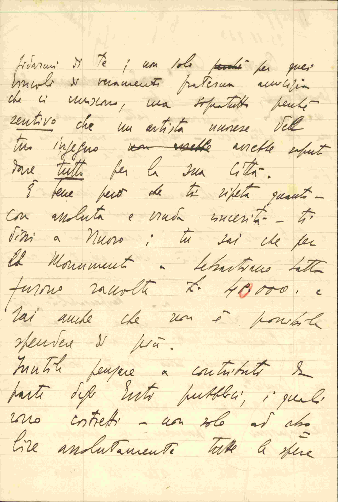 fidarmi di te; non solo perchè per quei
vincoli di veramente fraterna amicizia
che ci uniscono, ma sopratutto perchè
sentivo che un artista nuorese del
tuo ingegno non avrebbe avrebbe saputo
dare tutto per la sua città.
È bene però che ti ripeta quanto -
con assoluta e cruda sincerità - ti
dissi a Nuoro; tu sai che per
il Monumento a Sebastiano Satta
furono raccolte £ 40000. e
sai anche che non è possibile
spendere di più.
Inutile pensare a contributi da
parte degli Enti pubblici, i quali
sono costretti - non solo ad abo
lire assolutamente tutte le spese